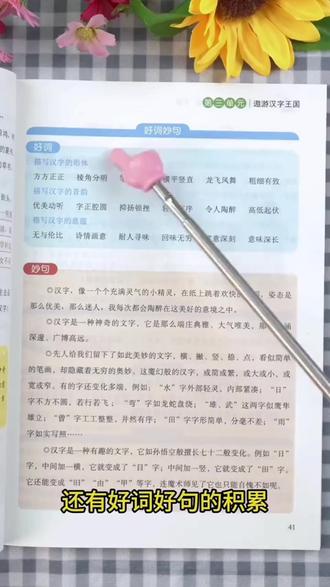 第三单元 遨游汉字王国
好词妙句
好词
描写汉字的形体
方方正正 棱角分明 横平竖直 龙飞凤舞 粗细有致
描写汉字的音韵
优美动听 字正腔圆 抑扬顿挫 令人陶醉 高低起伏
描写汉字的意蕴
无与伦比 诗情画意 耐人寻味 回味无穷 意深刻 意味深长
妙句
◎汉字，像一个个充满灵气的小精灵，在纸上跳着欢快的 姿态是
那么优美，那么迷人，我每次都会陶醉在这美好的意境之中。
◎汉字是一种神奇的文字，它是那么端庄典雅、大气唯美，那 涵
深邃、广博高远。
◎先人给我们留下了如此美妙的文字，横、撇、竖、捺、点，看似简单
的笔画，却隐藏着无穷的奥妙。这魔幻般的汉字，或简或繁，或大或小，或
宽或窄，有的字还变化多端，例如：“水”字外部轻灵，内部紧凑；“日”
字不方不圆，若行若飞；“弯”字如龙蛇盘绕；“雄、武”这两字似鹰隼
雄立；“曾”字工工整整，井然有序；“田”字字形简单，分毫不差；“雨”
字如实写照……
◎汉字是一种有趣的文字，它如孙悟空般擅长七十二般变化。例如“日”
字，中间加一横，它就变成了“目”字；中间加一竖，它就变成了“田”字，
它还能变成“旧”“由”“甲”等字，连魔术师见了它也只能自愧不如呢。
还有好词好句的积累
41